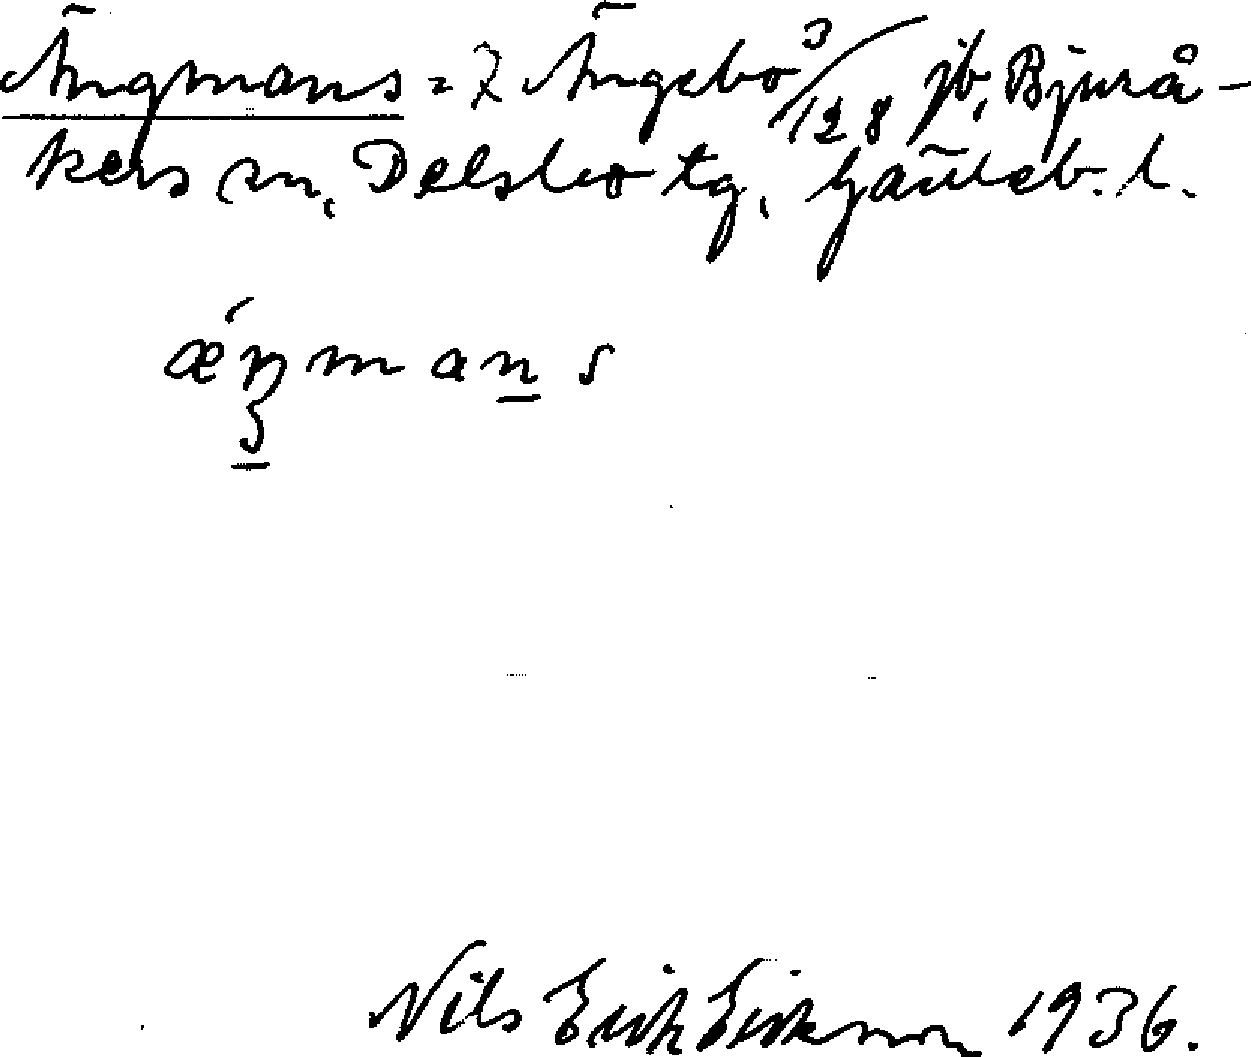 Ängmans = 7 Ängebo 3/128 jb, Bjurå-
kers sn, Delsbo tg, Gävleb. l.
ǽŋmans
Nils Erik Eriksson 1936.